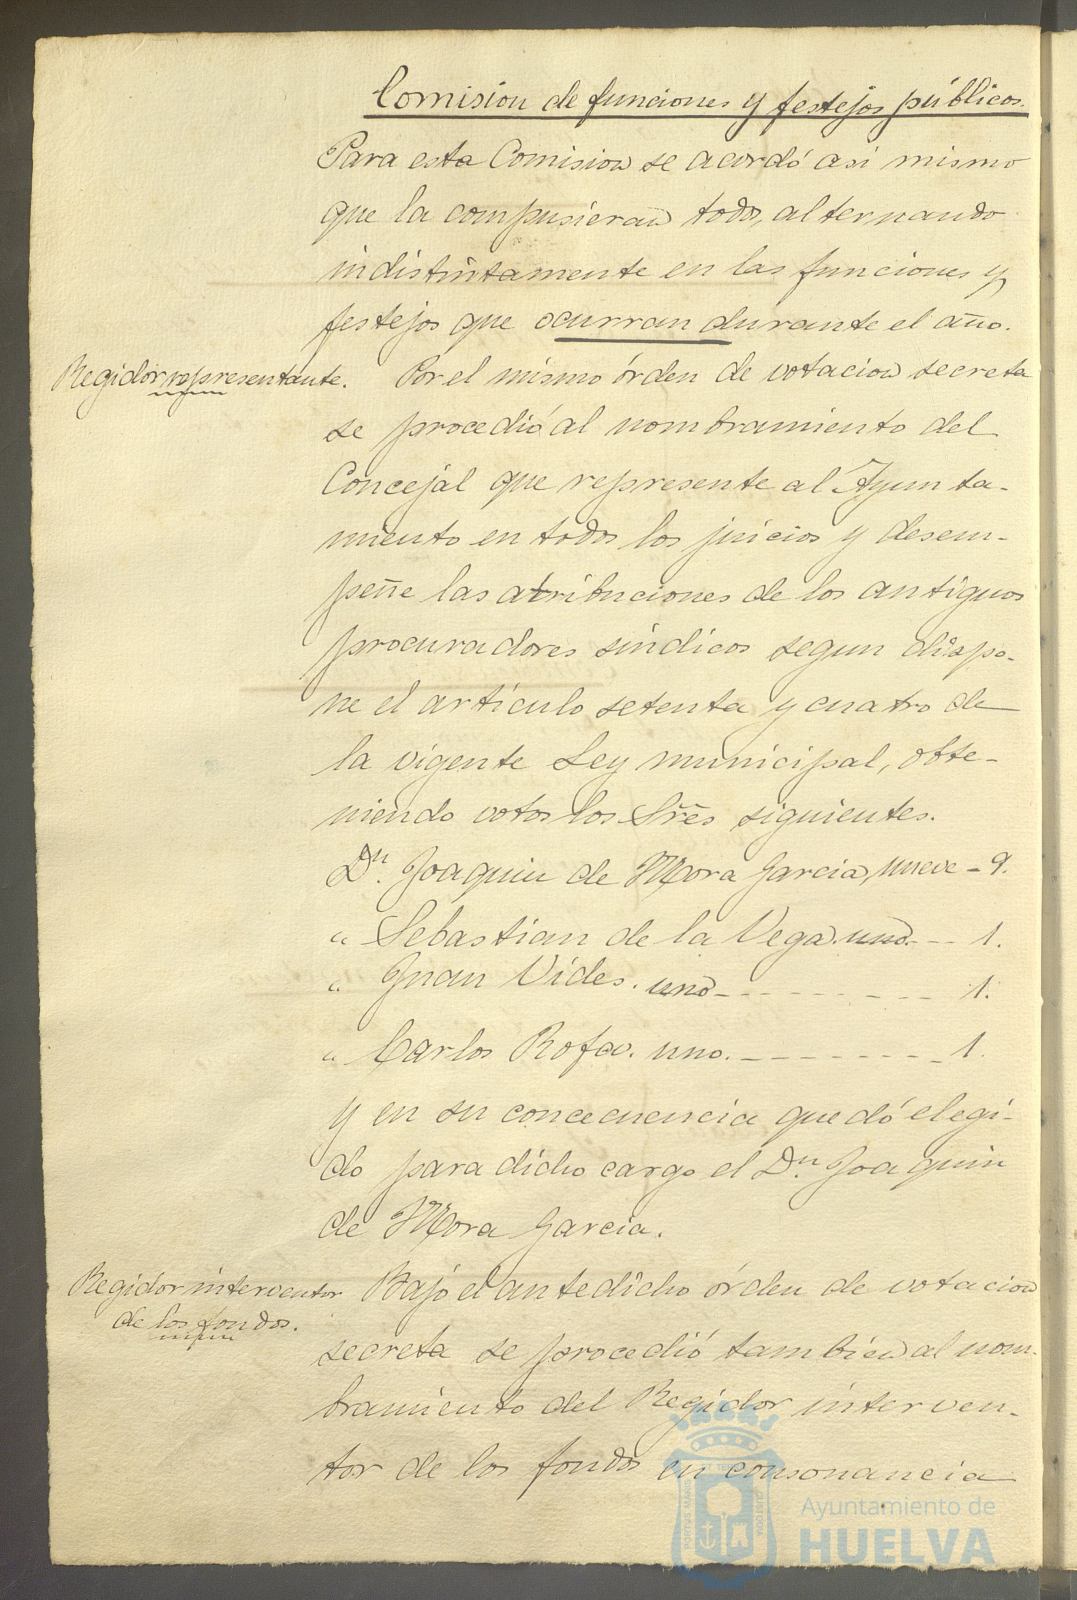 Comision de funciones y festejos públicos.
Para esta Comision se acordó asi mismo
que la compusieran todos, alternando
indistintamente en las funciones y
festejos que ocurran durante el año.
Regidor representante.
Por el mismo órden de votacion secreta
se procedió al nombramiento del
Concejal que represente al Ayunta-
miento en todos los juicios y desem-
peñe las atribuciones de los antiguos
procuradores sindicos segun dispo-
ne el artículo setenta y cuatro de
la vigente Ley municipal, obte-
niendo votos los Sres siguientes.
Dn. Joaquin de Mora Garcia, nueve - 9.
" Sebastian de la Vega. uno. -- 1.
" Juan Vides. uno - - - - - - - - 1.
" Carlos Rofa. uno. - - - - - - - - 1.
y en su concecuencia quedó elegi-
do para dicho cargo el Dn. Joaquin
de Mora Garcia.
Regidor interventor
de los fondos.
Bajo el antedicho órden de votacion
secreta se procedió tambien al nom-
bramiento del Regidor interven-
tor de los fondos en consonancia
PORTUS MARIS
CUSTODIA
Ayuntamiento de
HUELVA